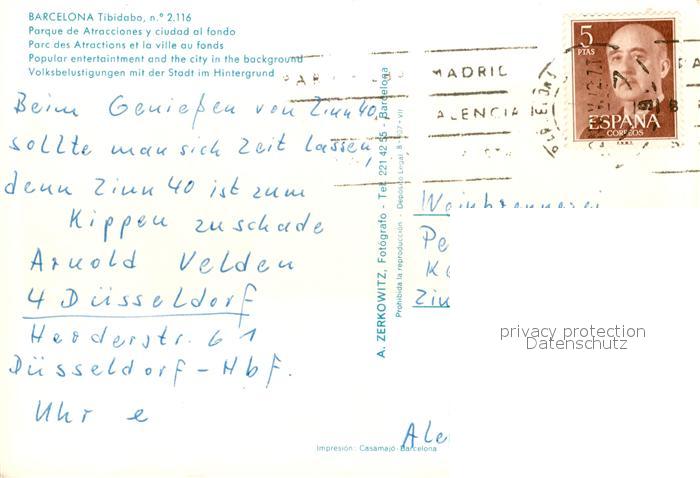 BARCELONA Tibidabo, n.º 2.116
Parque de Atracciones y ciudad al fondo
Parc des Attractions et la ville au fonds
Popular entertaintment and the city in the background
Volksbelustigungen mit der Stadt im Hintergrund
Beim Genießen von Zinn 40,
sollte man sich Zeit lassen,
denn Zinn 40 ist zum
Kippen zu schade
Arnold Velden
4 Düsseldorf
Herderstr. 61
Düsseldorf - Hbf.
Uhr e
A. ZERKOWITZ, Fotógrafo - Tel. 221 42 55 - Barcelona
Prohibida la reproducción - Depósito Legal B
Impresión: Casamajó-Barcelona
5
PTAS
ESPAÑA
CORREOS
F.N.M.T.
MADRID
ALENCIA
Weinbrennerei
Pe
Zin
Ale
privacy protection
Datenschutz